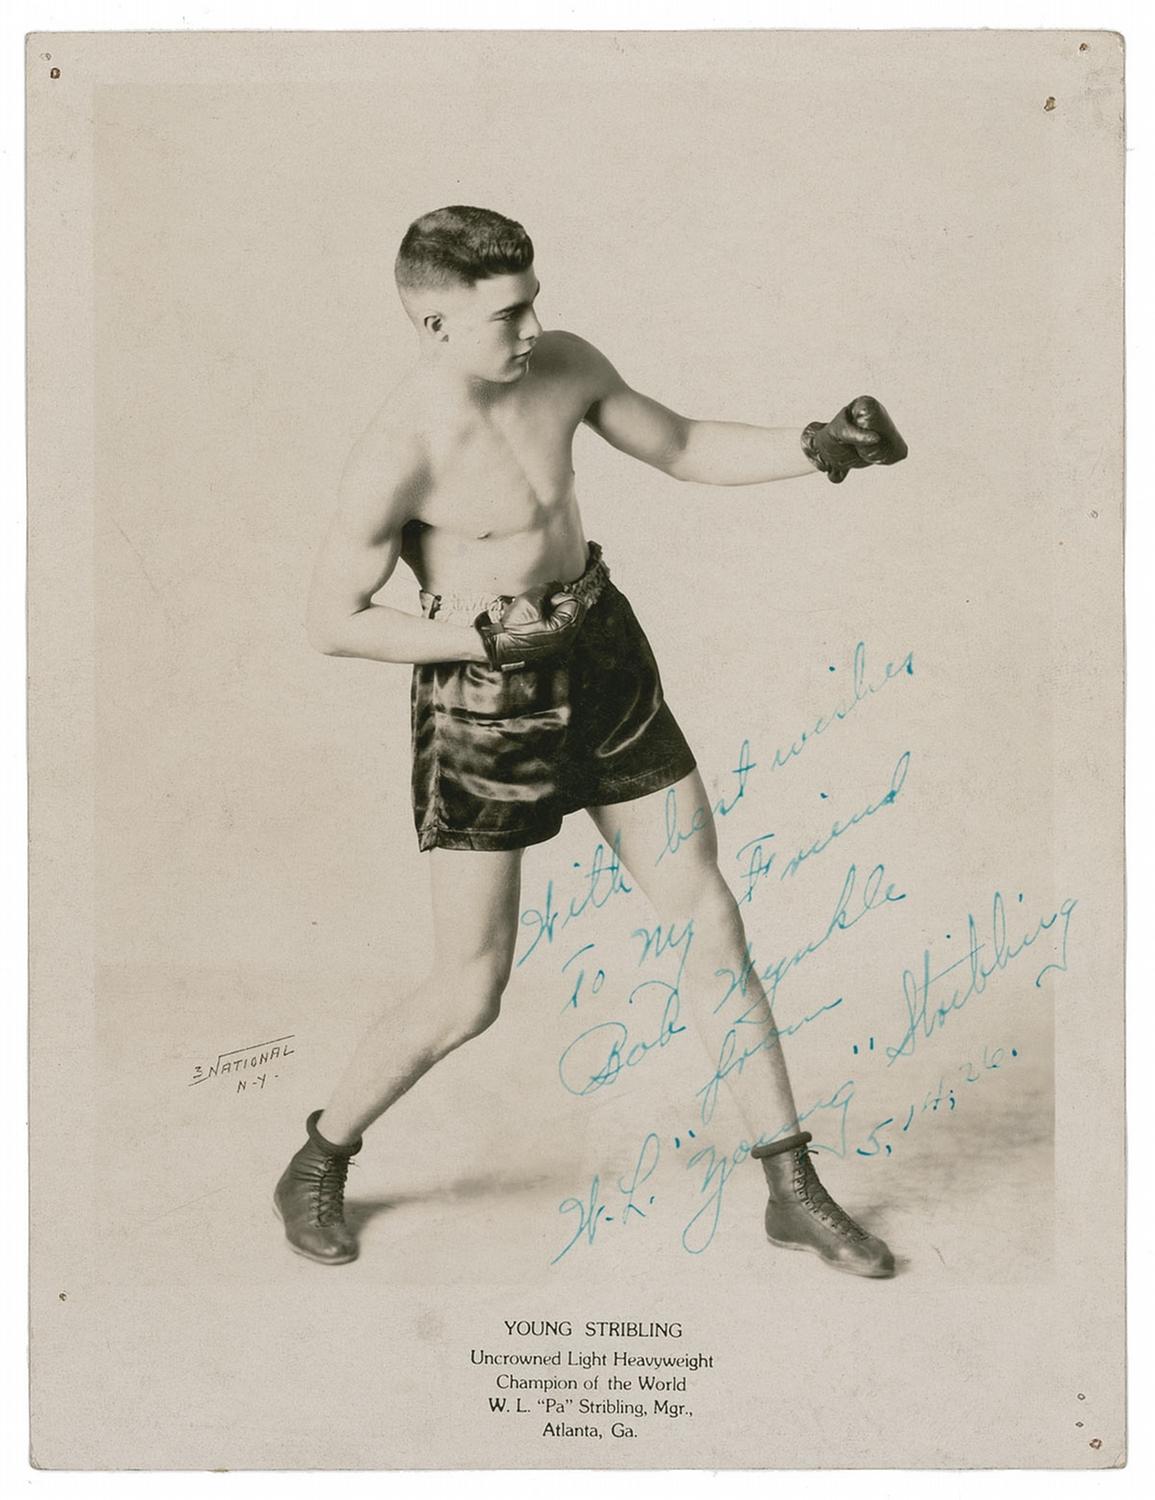 With best wishes
To My Friend
Bob Wynkle
from
W.L. "Young" Stribling
5, 14, 26.
NATIONAL
N-Y-
YOUNG STRIBLING
Uncrowned Light Heavyweight
Champion of the World
W. L. "Pa" Stribling, Mgr.,
Atlanta, Ga.